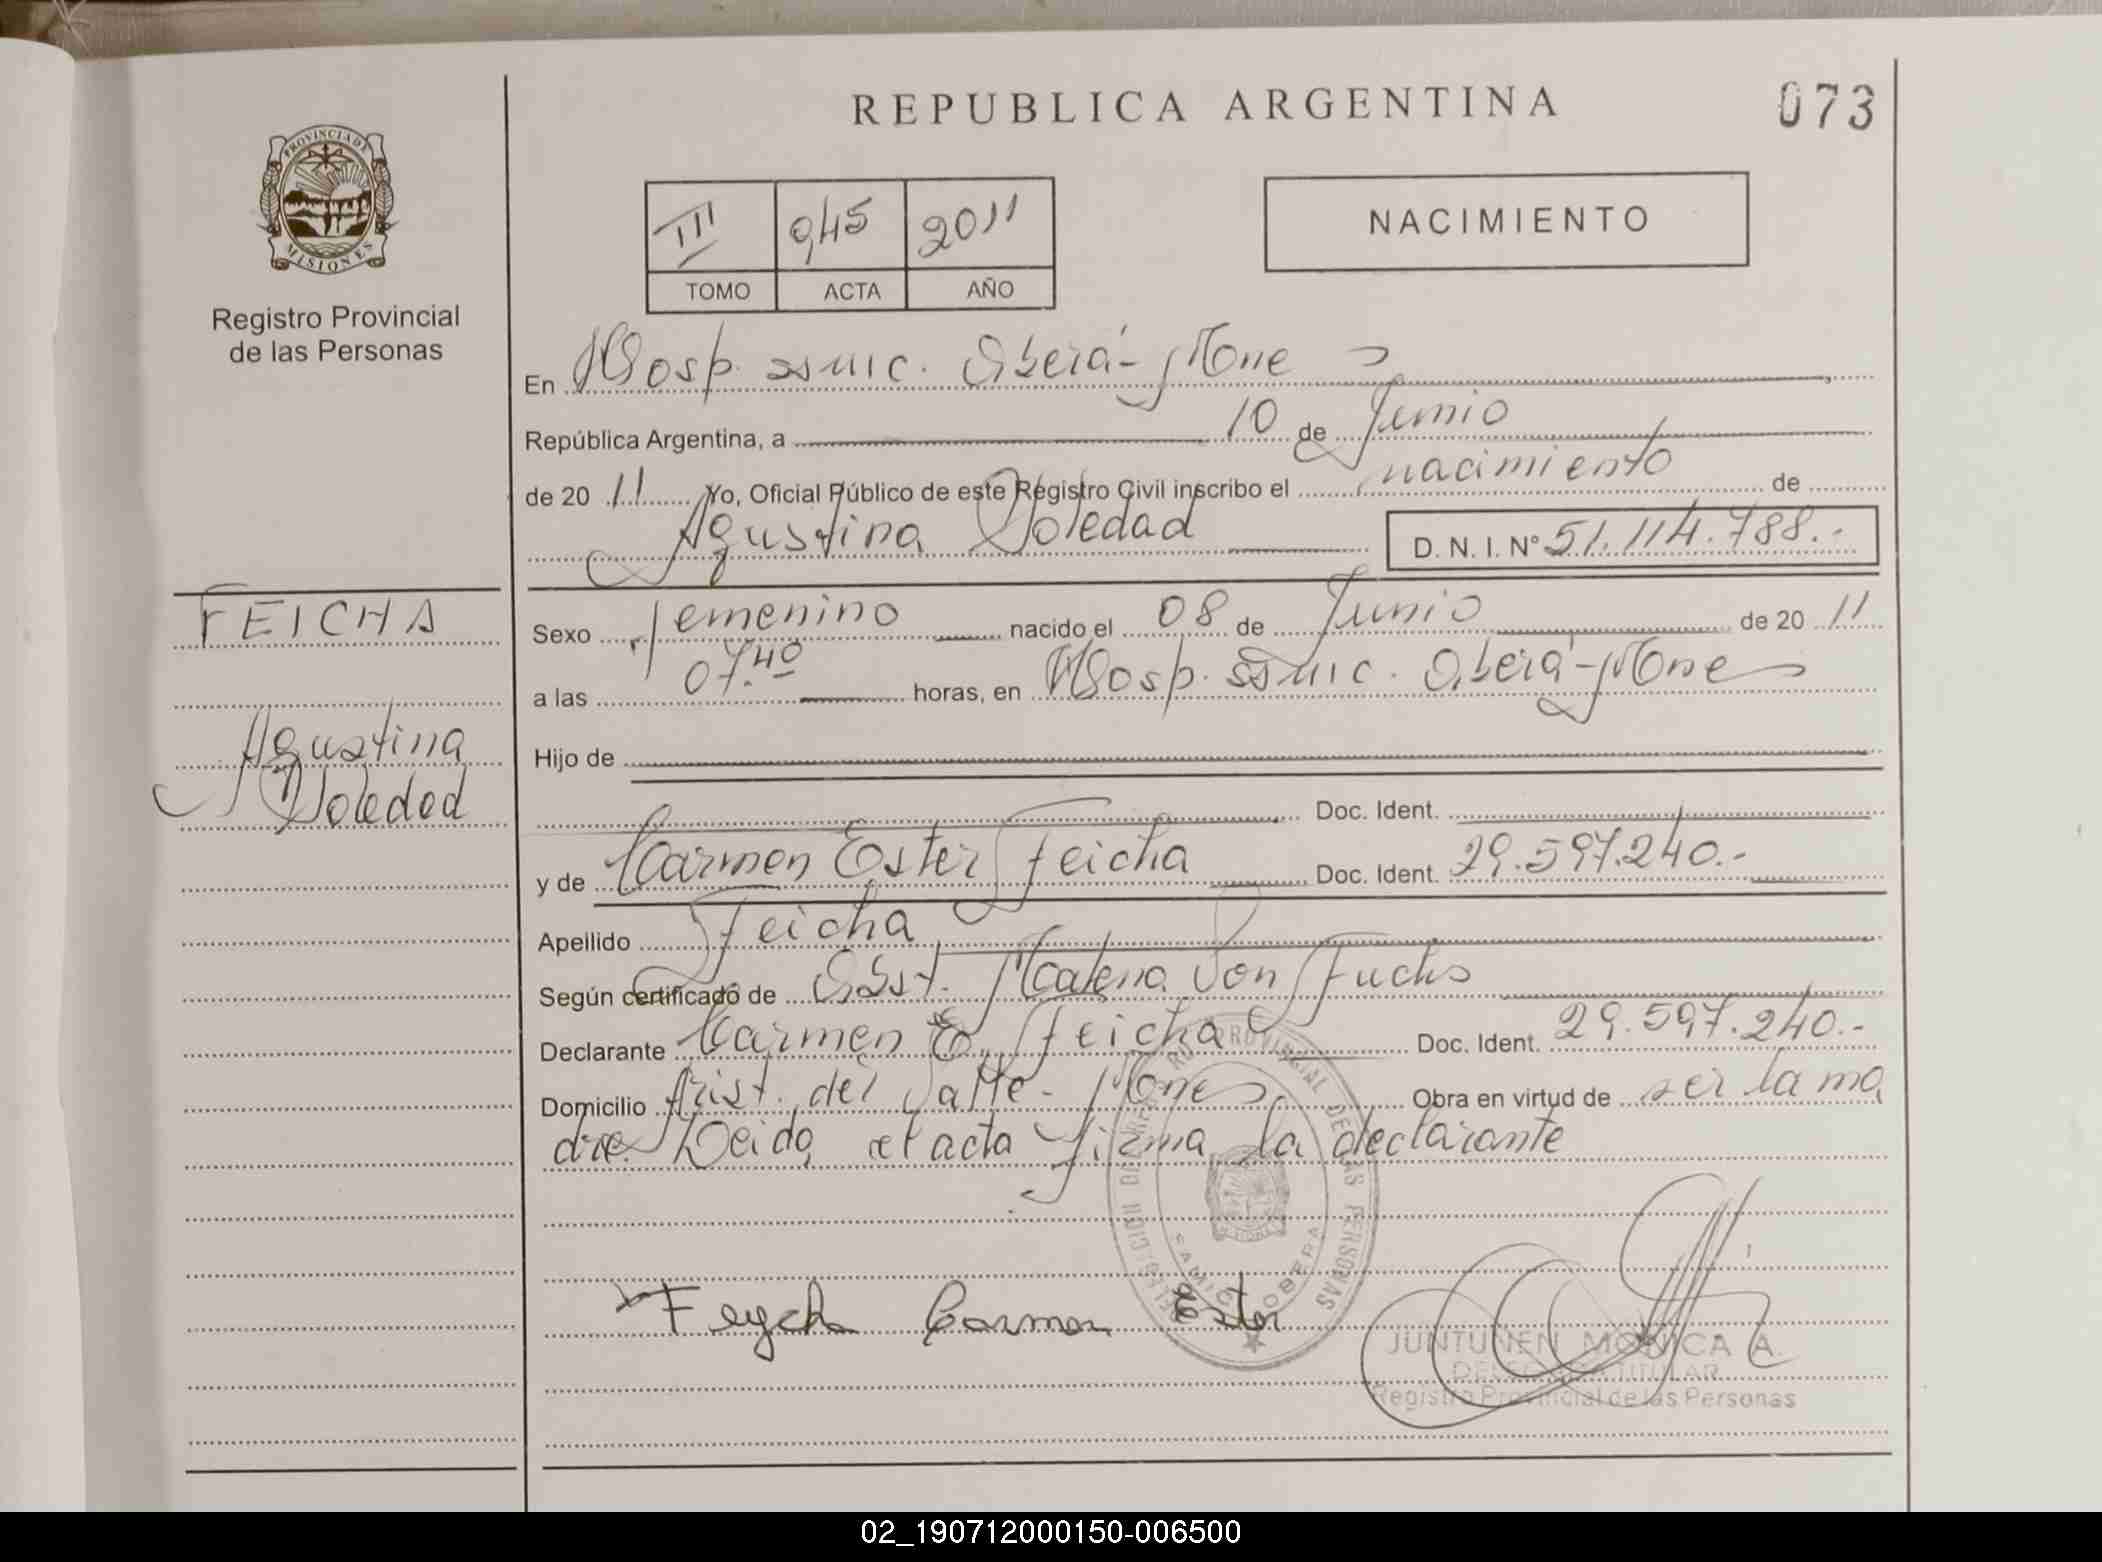 REPUBLICA ARGENTINA
073
PROVINCIA DE
MISIONES
Registro Provincial
de las Personas
III 945 2011
TOMO ACTA AÑO
NACIMIENTO
En Hosp. ssmic. Oberá-Mnes
República Argentina, a 10 de Junio
de 20 11 Yo, Oficial Público de este Registro Civil inscribo el nacimiento de
Agustina Soledad D. N. I. Nº 51.114.788.-
FEICHA
Agustina
Soledad
Sexo femenino nacido el 08 de Junio de 20 11
a las 07.40 horas, en Hosp. ssmic. Oberá-Mnes
Hijo de
Doc. Ident.
y de Carmen Ester Feicha Doc. Ident. 29.597.240.-
Apellido Feicha
Según certificado de Obst. Malena Von Fuchs
Declarante Carmen E. Feicha Doc. Ident. 29.597.240.-
Domicilio Arist. del Valle - Mnes Obra en virtud de ser la ma
dre Leida el acta firma la declarante
REGISTRO PROVINCIAL DE LAS PERSONAS
OBERA
Feycha Carmen Ester
JUNTUNEN MONICA A.
TITULAR
Registro Provincial de las Personas
02_190712000150-006500